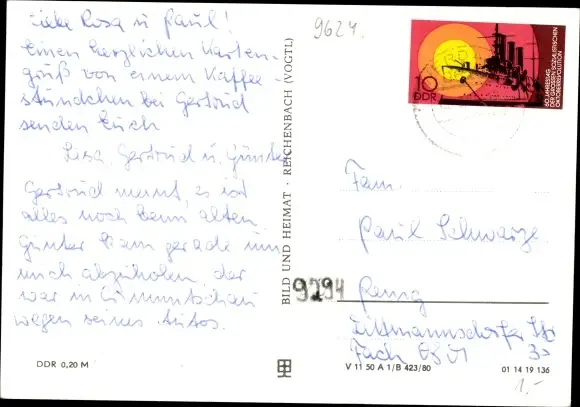 Liebe Rosa u Paul!
Einen herzlichen Karten-
gruß von einem Kaffee-
stündchen bei Gertrud
senden Euch
Lisa, Gertrud u. Günter
Gertrud meint, es ist
alles noch beim alten.
Günter kam gerade um
mich abzuholen, der
war in Crimmitschau
wegen seines Autos.
DDR 0,20 M
BILD UND HEIMAT · REICHENBACH (VOGTL)
9624.
10
DDR
60. JAHRESTAG
DER GROSSEN SOZIALISTISCHEN
OKTOBERREVOLUTION
Fam.
Paul Schwarze
9294
Penig
Dittmannsdorfer Str
Fach
V 11 50 A 1/B 423/80
01 14 19 136
1,-